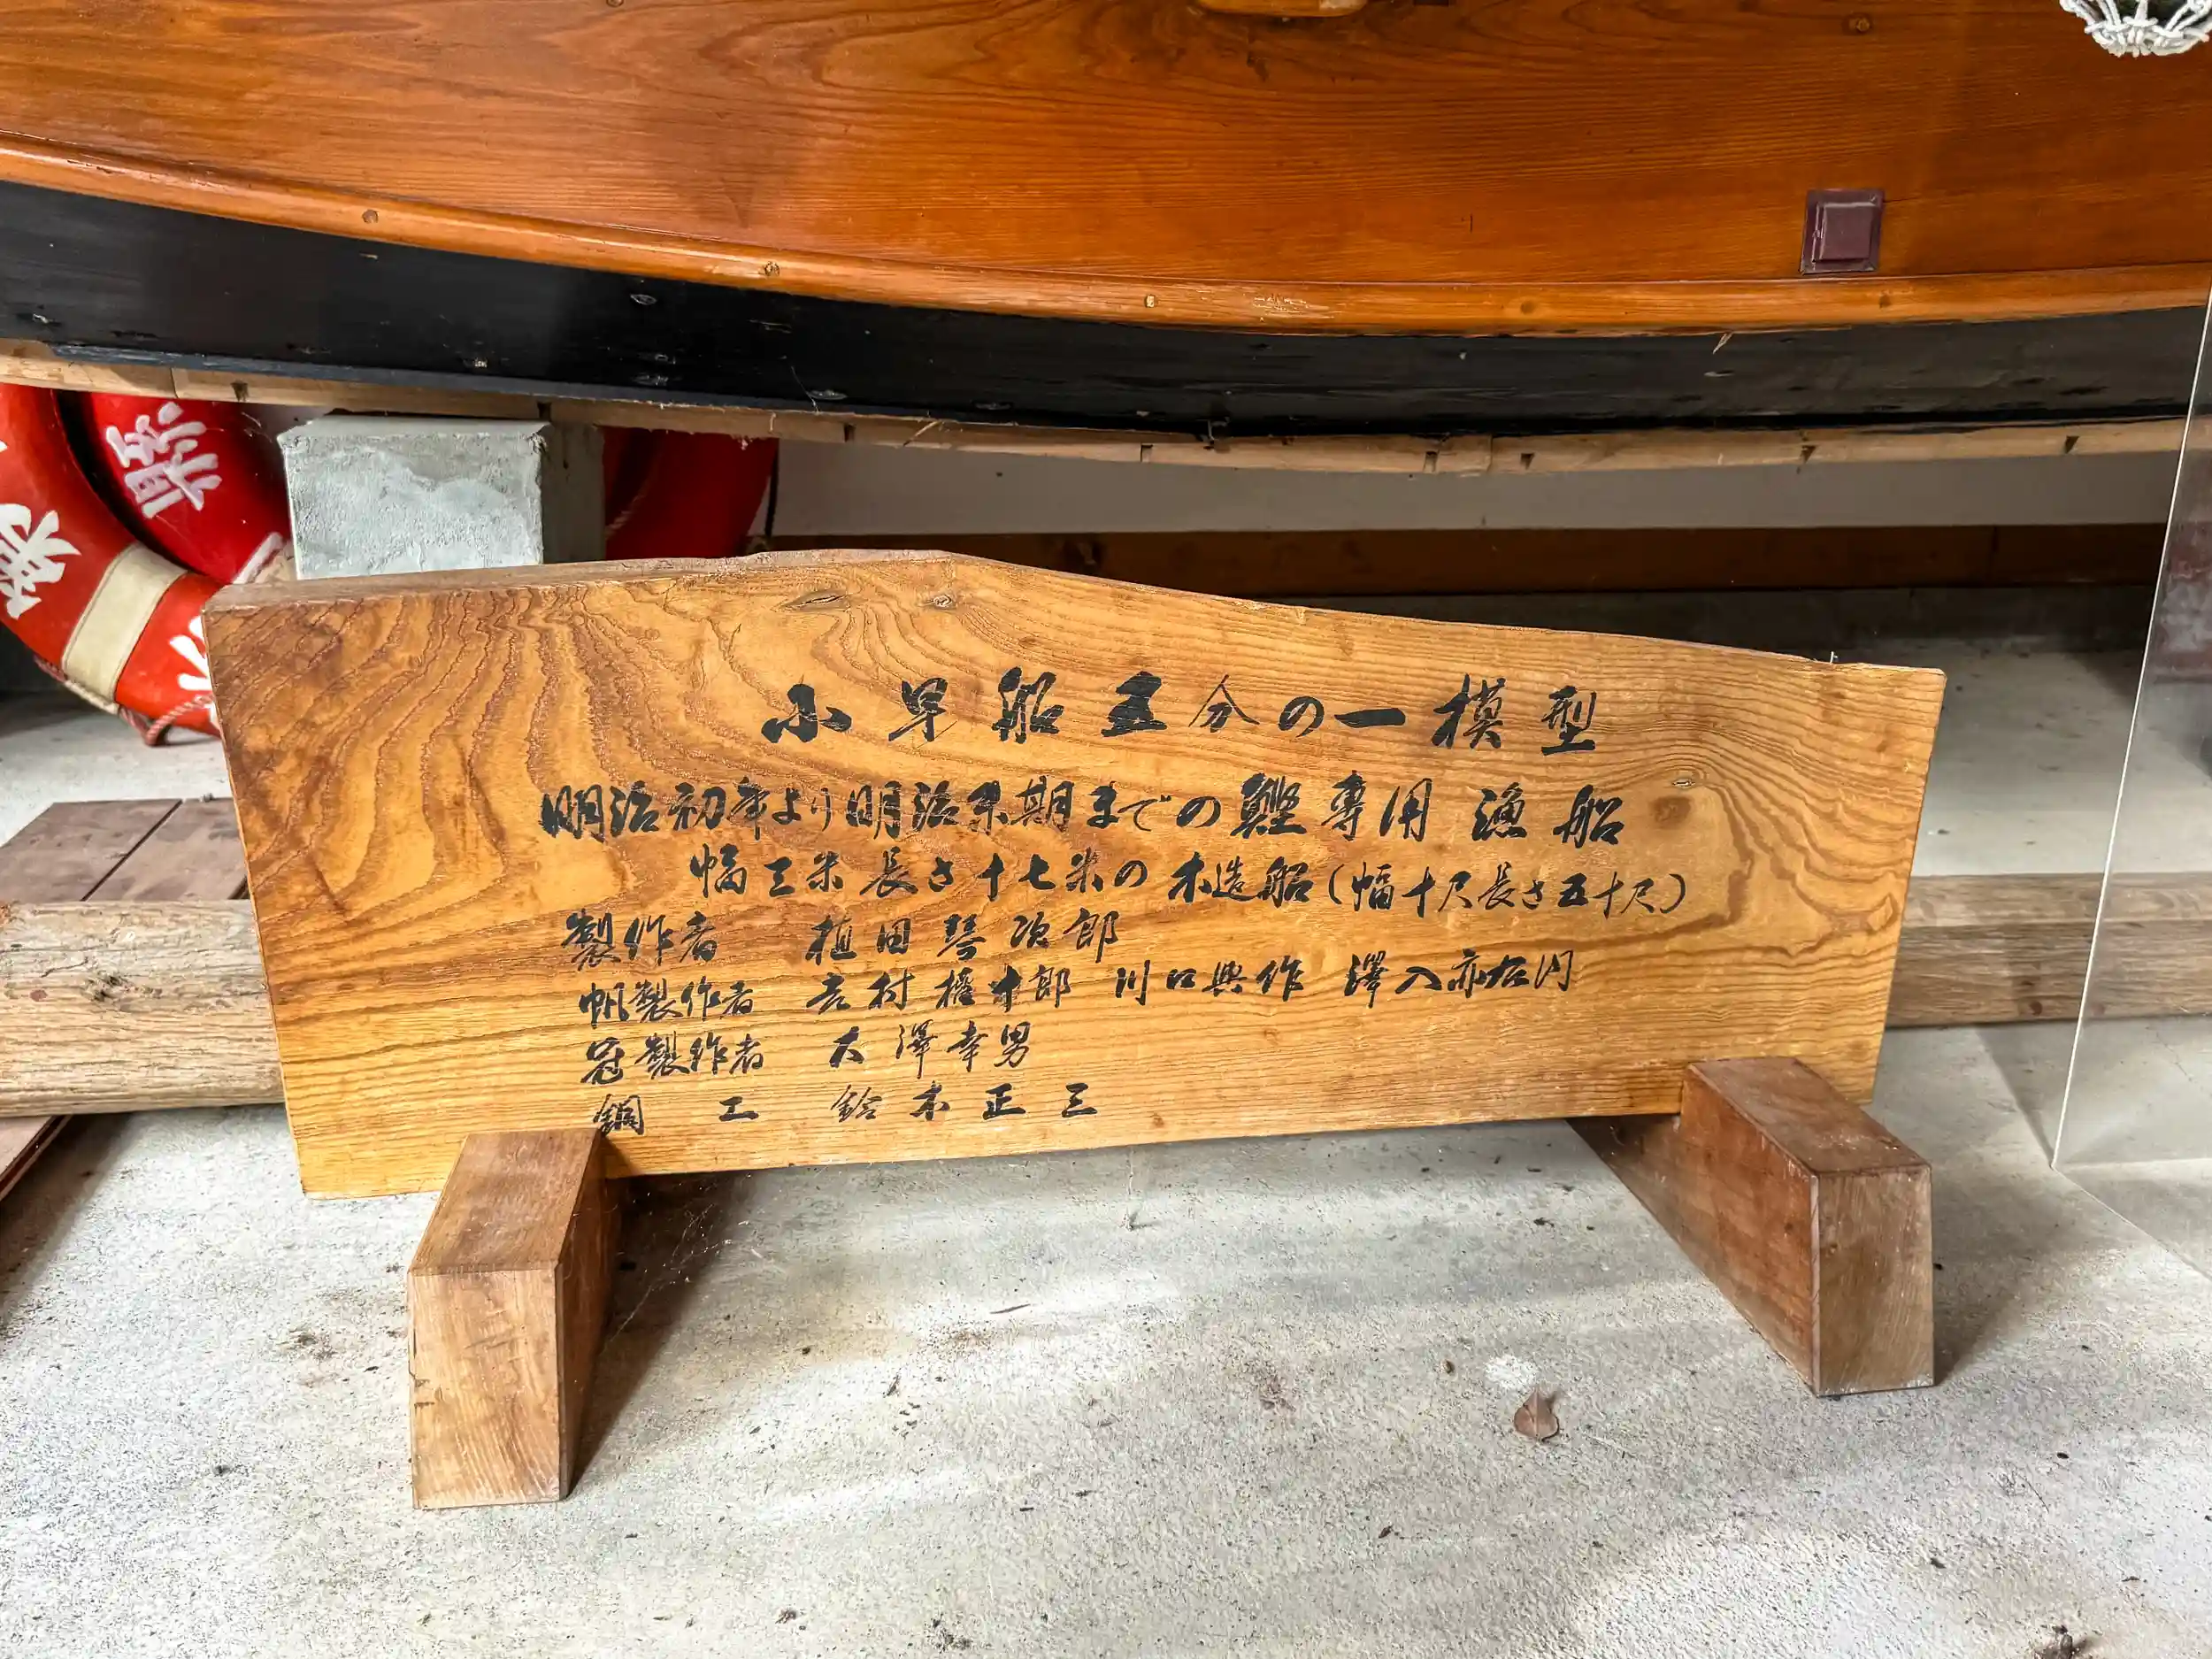 小早船五分の一模型
明治初年より明治末期までの鰹専用漁船
幅三米長さ十七米の木造船(幅十尺長さ五十尺)
製作者 植田琴次郎
帆製作者 吉村權十郎 川口與作 澤入亦右门
冠製作者 大澤幸男
銅工 鈴木正三